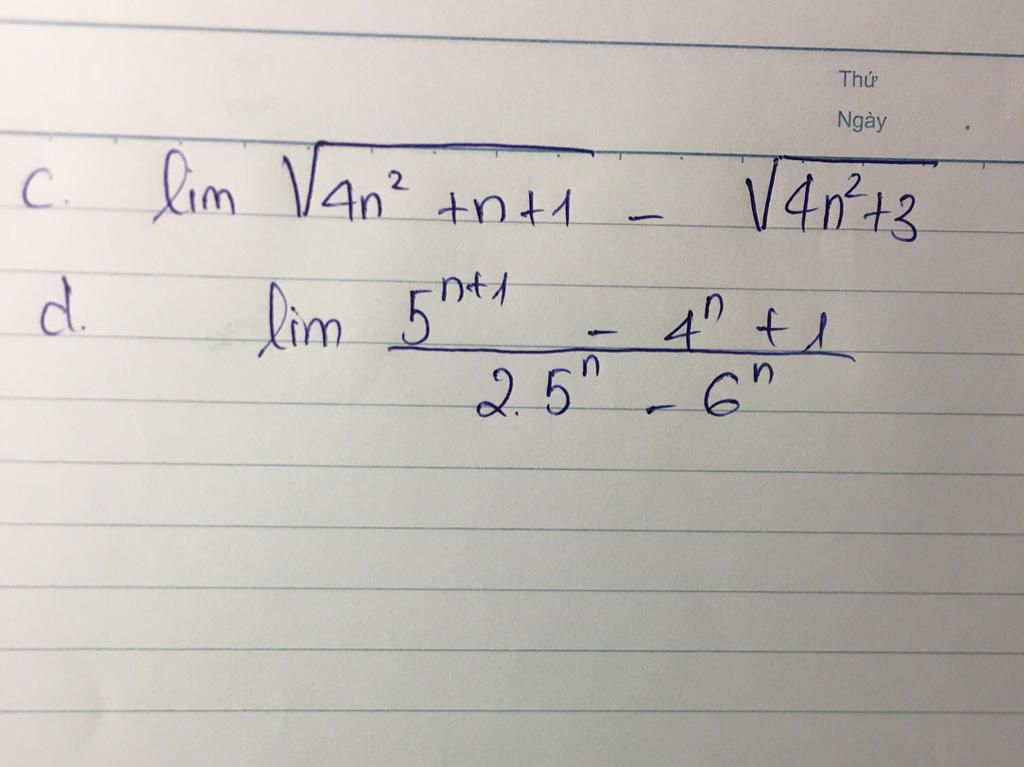 Thứ
Ngày
c. lim √(4n² + n + 1) - √(4n² + 3)
d. lim (5ⁿ⁺¹ - 4ⁿ + 1) / (2.5ⁿ - 6ⁿ)